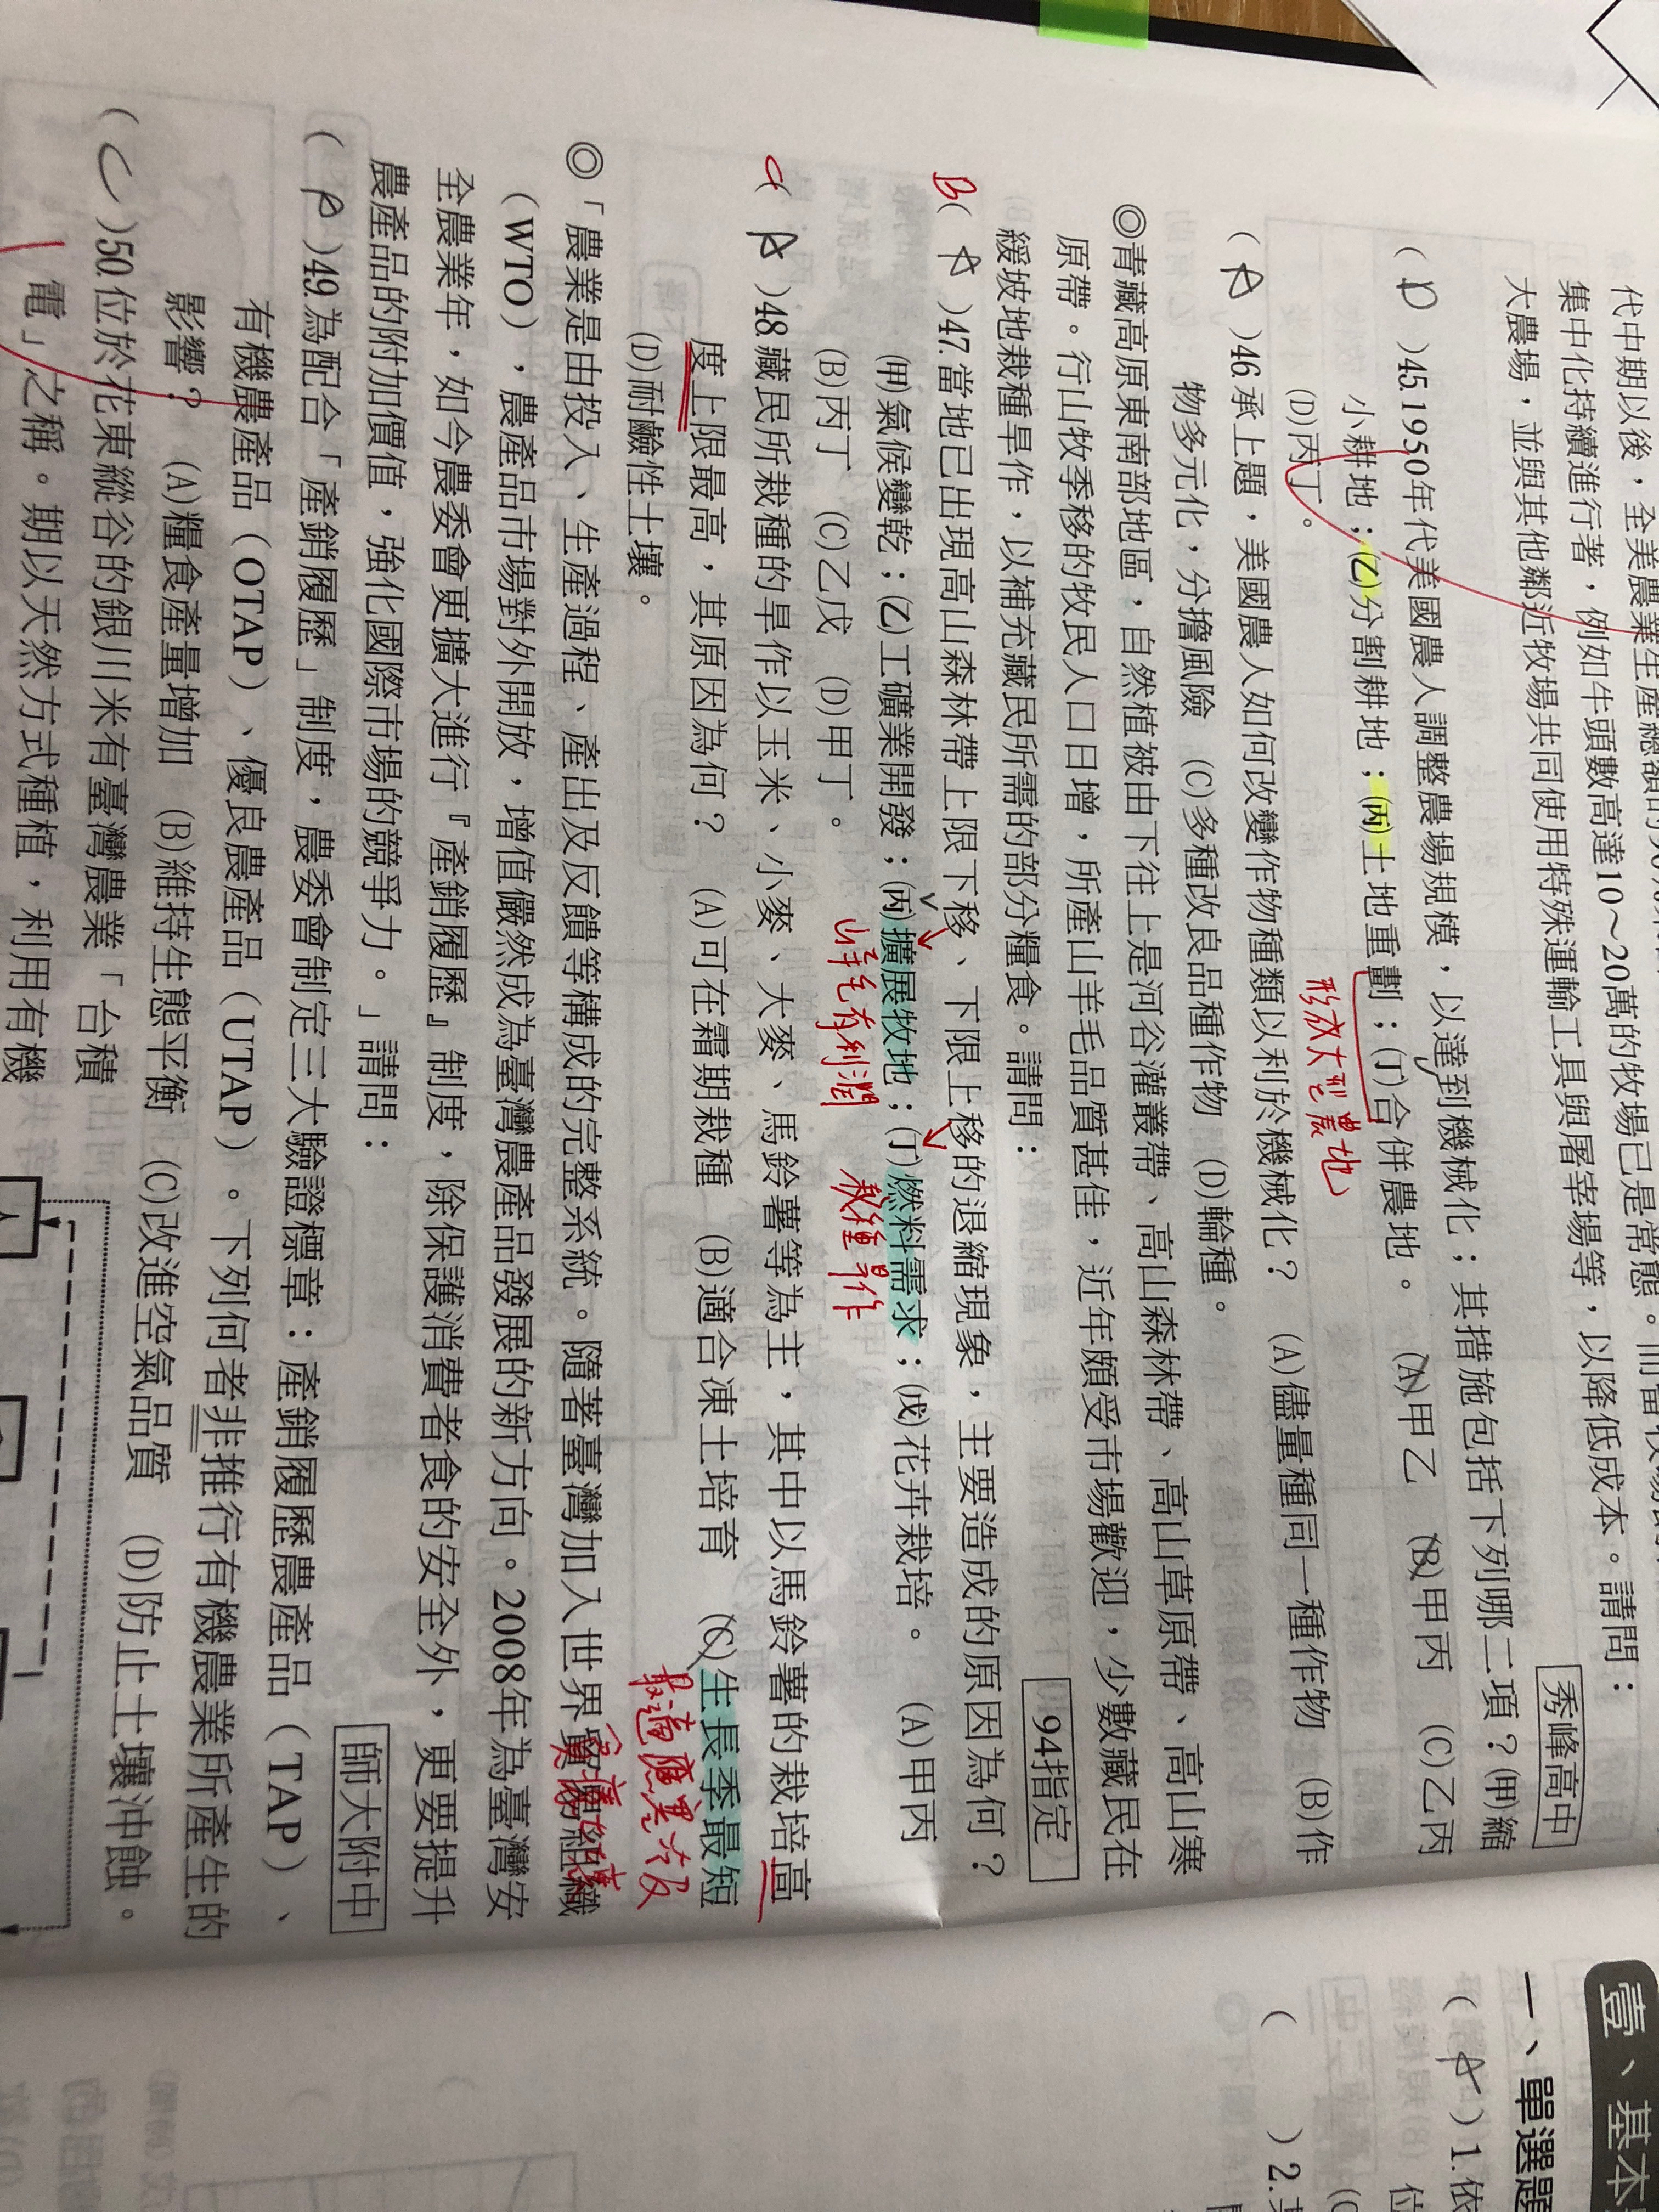 代中期以後，全美農業生產總額的
集中化持續進行著，例如牛頭數高達10～20萬的牧場已是常態。而當牧場
大農場，並與其他鄰近牧場共同使用特殊運輸工具與屠宰場等，以降低成本。請問：
秀峰高中
( D )45.1950年代美國農人調整農場規模，以達到機械化；其措施包括下列哪二項？(甲)縮
小耕地；(乙)分割耕地；(丙)土地重劃；(丁)合併農地。 (A)甲乙 (B)甲丙 (C)乙丙
(D)丙丁。
形成大型農地
( A )46.承上題，美國農人如何改變作物種類以利於機械化？ (A)儘量種同一種作物 (B)作
物多元化，分擔風險 (C)多種改良品種作物 (D)輪種。
◎青藏高原東南部地區，自然植被由下往上是河谷灌叢帶、高山森林帶、高山草原帶、高山寒
原帶。行山牧季移的牧民人口日增，所產山羊毛品質甚佳，近年頗受市場歡迎，少數藏民在
緩坡地栽種旱作，以補充藏民所需的部分糧食。請問：
94指定
B( A )47.當地已出現高山森林帶上限下移、下限上移的退縮現象，主要造成的原因為何？
(甲)氣候變乾；(乙)工礦業開發；(丙)擴展牧地；(丁)燃料需求；(戊)花卉栽培。 (A)甲丙
山羊毛有利潤 栽種旱作
(B)丙丁 (C)乙戊 (D)甲丁。
C( A )48.藏民所栽種的旱作以玉米、小麥、大麥、馬鈴薯等為主，其中以馬鈴薯的栽培高
度上限最高，其原因為何？ (A)可在霜期栽種 (B)適合凍土培育 (C)生長季最短
(D)耐鹼性土壤。
最適應寒冷段
◎「農業是由投入、生產過程、產出及反饋等構成的完整系統。隨著臺灣加入世界貿易組織
（WTO），農產品市場對外開放，增值儼然成為臺灣農產品發展的新方向。2008年為臺灣安
全農業年，如今農委會更擴大進行『產銷履歷』制度，除保護消費者食的安全外，更要提升
農產品的附加價值，強化國際市場的競爭力。」請問：
師大附中
( A )49.為配合「產銷履歷」制度，農委會制定三大驗證標章：產銷履歷農產品（TAP）、
有機農產品（OTAP）、優良農產品（UTAP）。下列何者非推行有機農業所產生的
影響？ (A)糧食產量增加 (B)維持生態平衡 (C)改進空氣品質 (D)防止土壤沖蝕。
( C )50.位於花東縱谷的銀川米有臺灣農業「台積
電」之稱。期以天然方式種植，利用有機
壹、基本
一、單選題
( A )1.依
( )2.